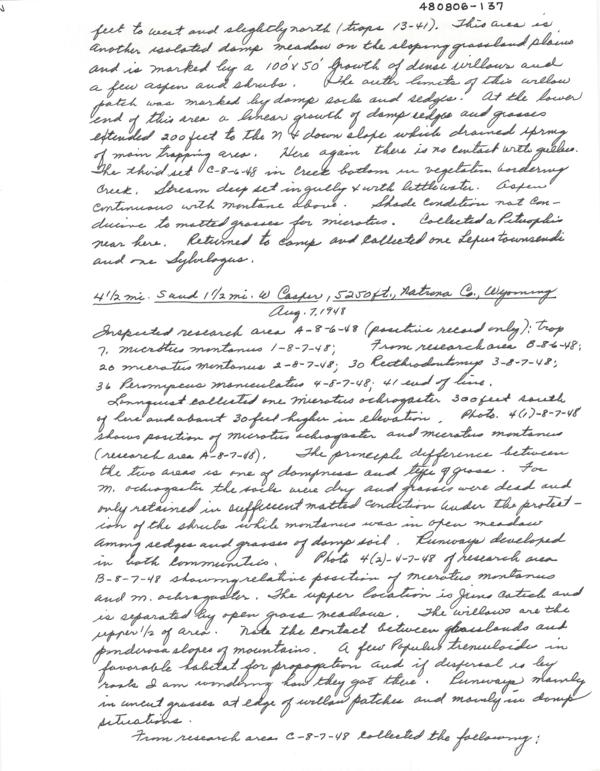 480806-137
feet to west and slightly north (traps 13-41). This area is
another isolated damp meadow on the sloping grassland plains
and is marked by a 100'x50' growth of dense willows and
a few aspen and shrubs. The outer limits of this willow
patch was marked by damp soils and sedges. At the lower
end of this area a linear growth of damp sedges and grasses
extended 200 feet to the N & down slope which drained spring
of main trapping area. Here again there is no contact with gullies.
The third set C-8-6-48 in creek bottom in vegetation bordering
creek. Stream deep set in gully & with little water. Aspen
continuous with montane above. Shade condition not con-
ducive to matted grasses for microtus. Collected a Pituophis
near here. Returned to camp and collected one Lepus townsendi
and one Sylvilagus.
4 1/2 mi. S and 1 1/2 mi. W Casper, 5250 ft., Natrona Co., Wyoming
Aug. 7, 1948
Inspected research area A-8-6-48 (positive record only); trap
7, microtus montanus 1-8-7-48; From research area B-8-6-48;
20 microtus montanus 2-8-7-48; 30 Reithrodontomys 3-8-7-48;
36 Peromyscus maniculatus 4-8-7-48; 41 end of line.
Lonnquist collected one microtus ochrogaster 300 feet south
of here and about 30 feet higher in elevation. Photo. 4(1)-8-7-48
shows position of microtus ochrogaster and microtus montanus
(research area A-8-7-48). The principle difference between
the two areas is one of dampness and type of grass. For
M. ochrogaster the soils were dry and grasses were dead and
only retained in sufficient matted condition under the protect-
ion of the shrubs while montanus was in open meadow
among sedges and grasses of damp soil. Runways developed
in both communities. Photo 4(2)-4-7-48 of research area
B-8-7-48 showing relative position of microtus montanus
and m. ochrogaster. The upper location is Jims catch and
is separated by open grass meadows. The willows are the
upper 1/2 of area. Note the contact between grasslands and
ponderosa slopes of mountains. A few Populus tremuloides in
favorable habitat for propagation and if dispersal is by
roots I am wondering how they got there. Runways mainly
in uncut grasses at edge of willow patches and mainly in damp
situations.
From research area C-8-7-48 collected the following: